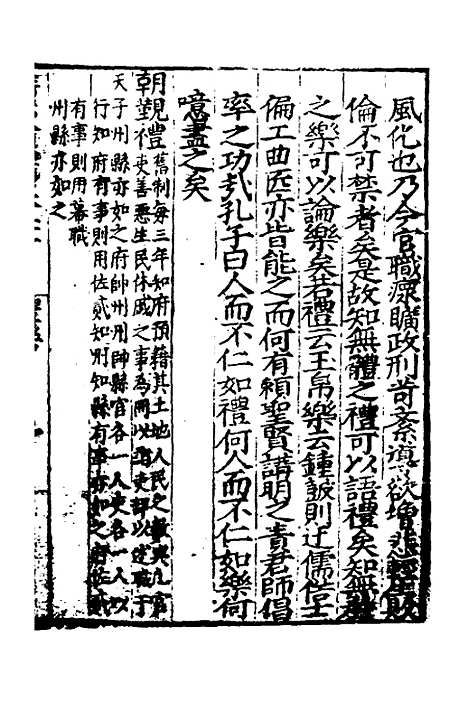 風化也乃今官職瘝曠政刑苛紊導欲增悲輕生敗
倫不可禁者矣是故知無體之禮可以語禮矣知無聲
之樂可以論樂矣若禮云玉帛樂云鍾皷則迂儒信士
偏工曲匠亦皆能之而何有賴聖賢講明之責君師倡
率之功㦲孔子曰人而不仁如禮何人而不仁如樂何
噫盡之矣
朝覲禮
朝見禮舊制每三年如府預籍其土地人民之數與凡官
吏善惡生民休戚之事為冊以述職于
天子州縣亦如之府帥州州帥縣官各一人吏各一人以
行知府有事則用佐貳如州知縣有事亦如之府佐貳
有事則用幕職
州縣亦如之